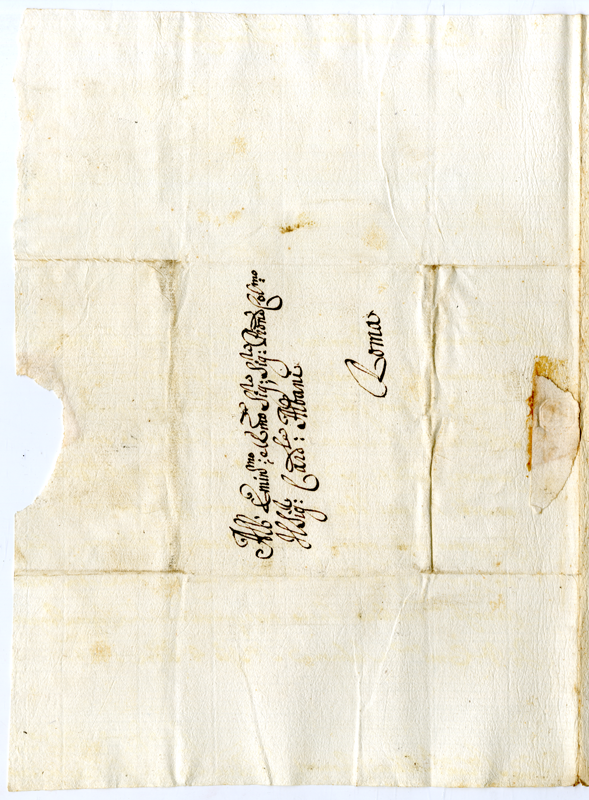 All' Emin:mo e R.mo Sig:re Sig:re Prone Col:mo
Il Sig:r Card:le Albani
Roma